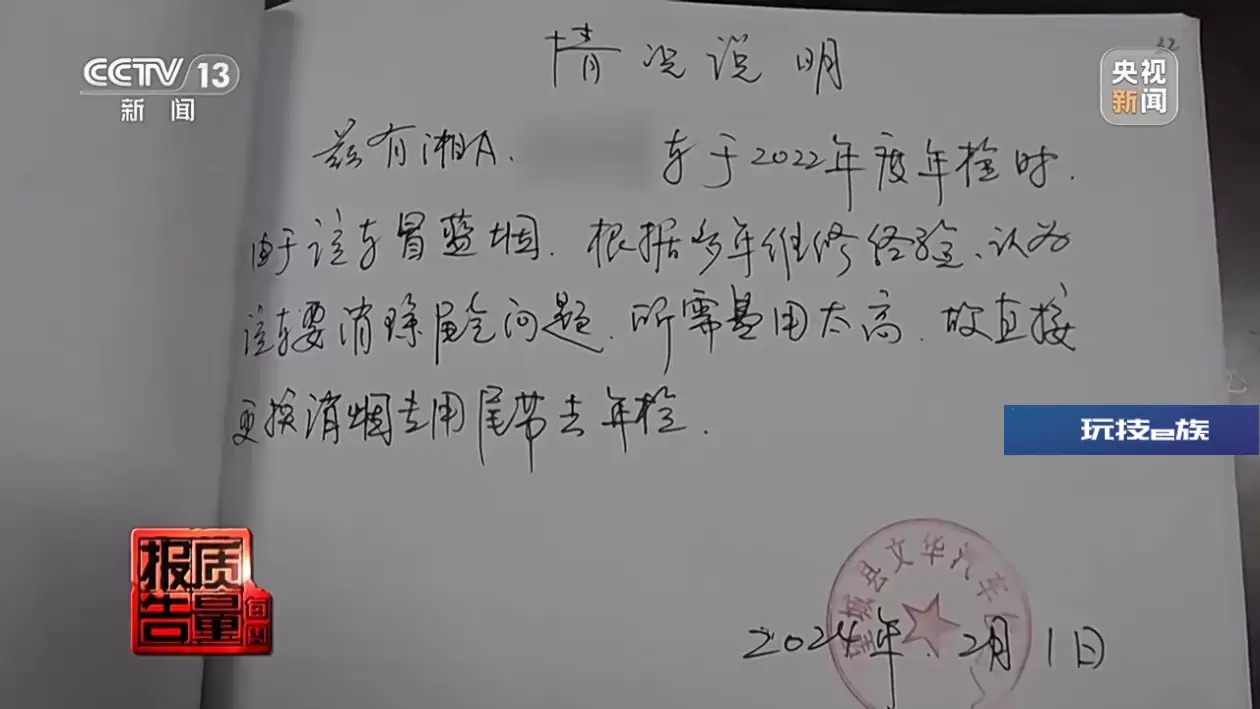 CCTV 13
新闻
央视
新闻
32
情况说明
兹有湘A. 车于2022年度年检时.
由于该车冒蓝烟. 根据多年维修经验、认为
该车要消除尾气问题. 所需费用太高. 故直接
更换消烟专用尾带去年检.
玩技e族
质量报告
每周
文华汽车
2024年.2月1日